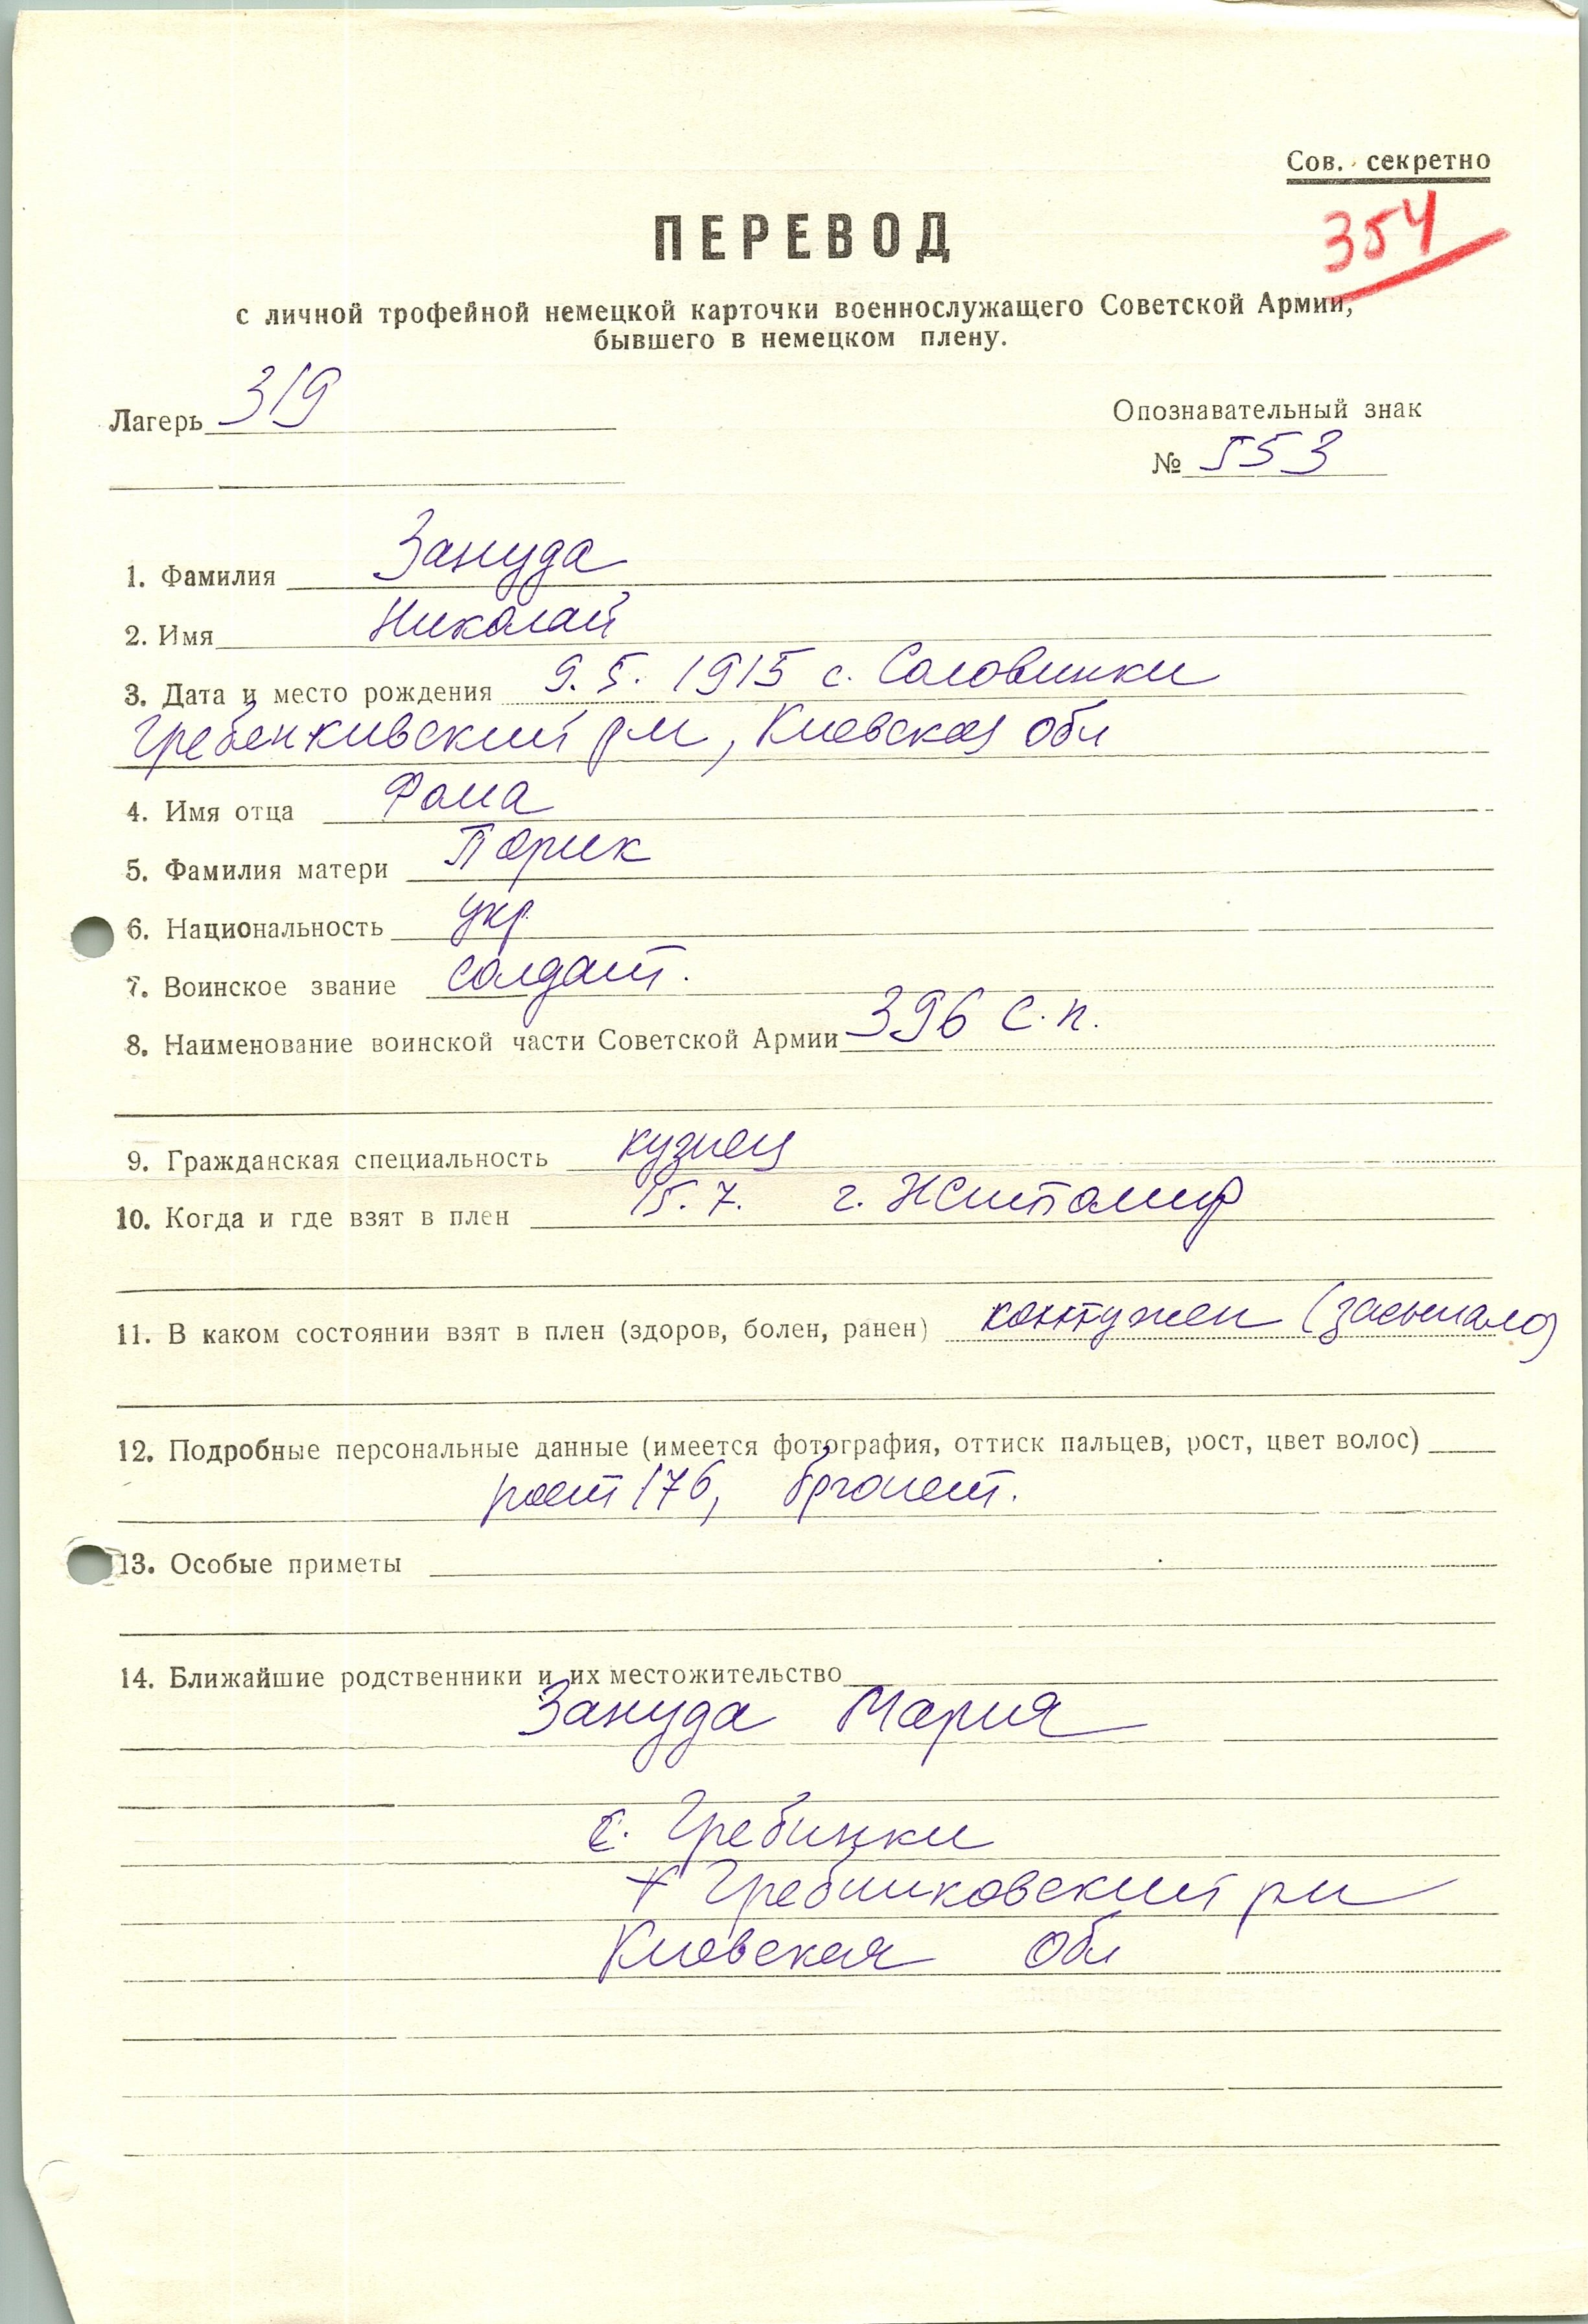 Сов. секретно
354
ПЕРЕВОД
с личной трофейной немецкой карточки военнослужащего Советской Армии,
бывшего в немецком плену.
Лагерь 319
Опознавательный знак
№ 553
1. Фамилия Зануда
2. Имя Николай
3. Дата и место рождения 9.5. 1915 с. Саловинки
Гребенкивский р-н, Киевская обл
4. Имя отца Фома
5. Фамилия матери Порик
6. Национальность укр
7. Воинское звание солдат.
8. Наименование воинской части Советской Армии 396 с.п.
9. Гражданская специальность кузнец
10. Когда и где взят в плен 15.7. г. Житомир
11. В каком состоянии взят в плен (здоров, болен, ранен) контужен (засыпало)
12. Подробные персональные данные (имеется фотография, оттиск пальцев, рост, цвет волос)
рост 176, брюнет.
13. Особые приметы
14. Ближайшие родственники и их местожительство
Зануда Мария
с. Гребинки
Гребинковский р-н
Киевская обл